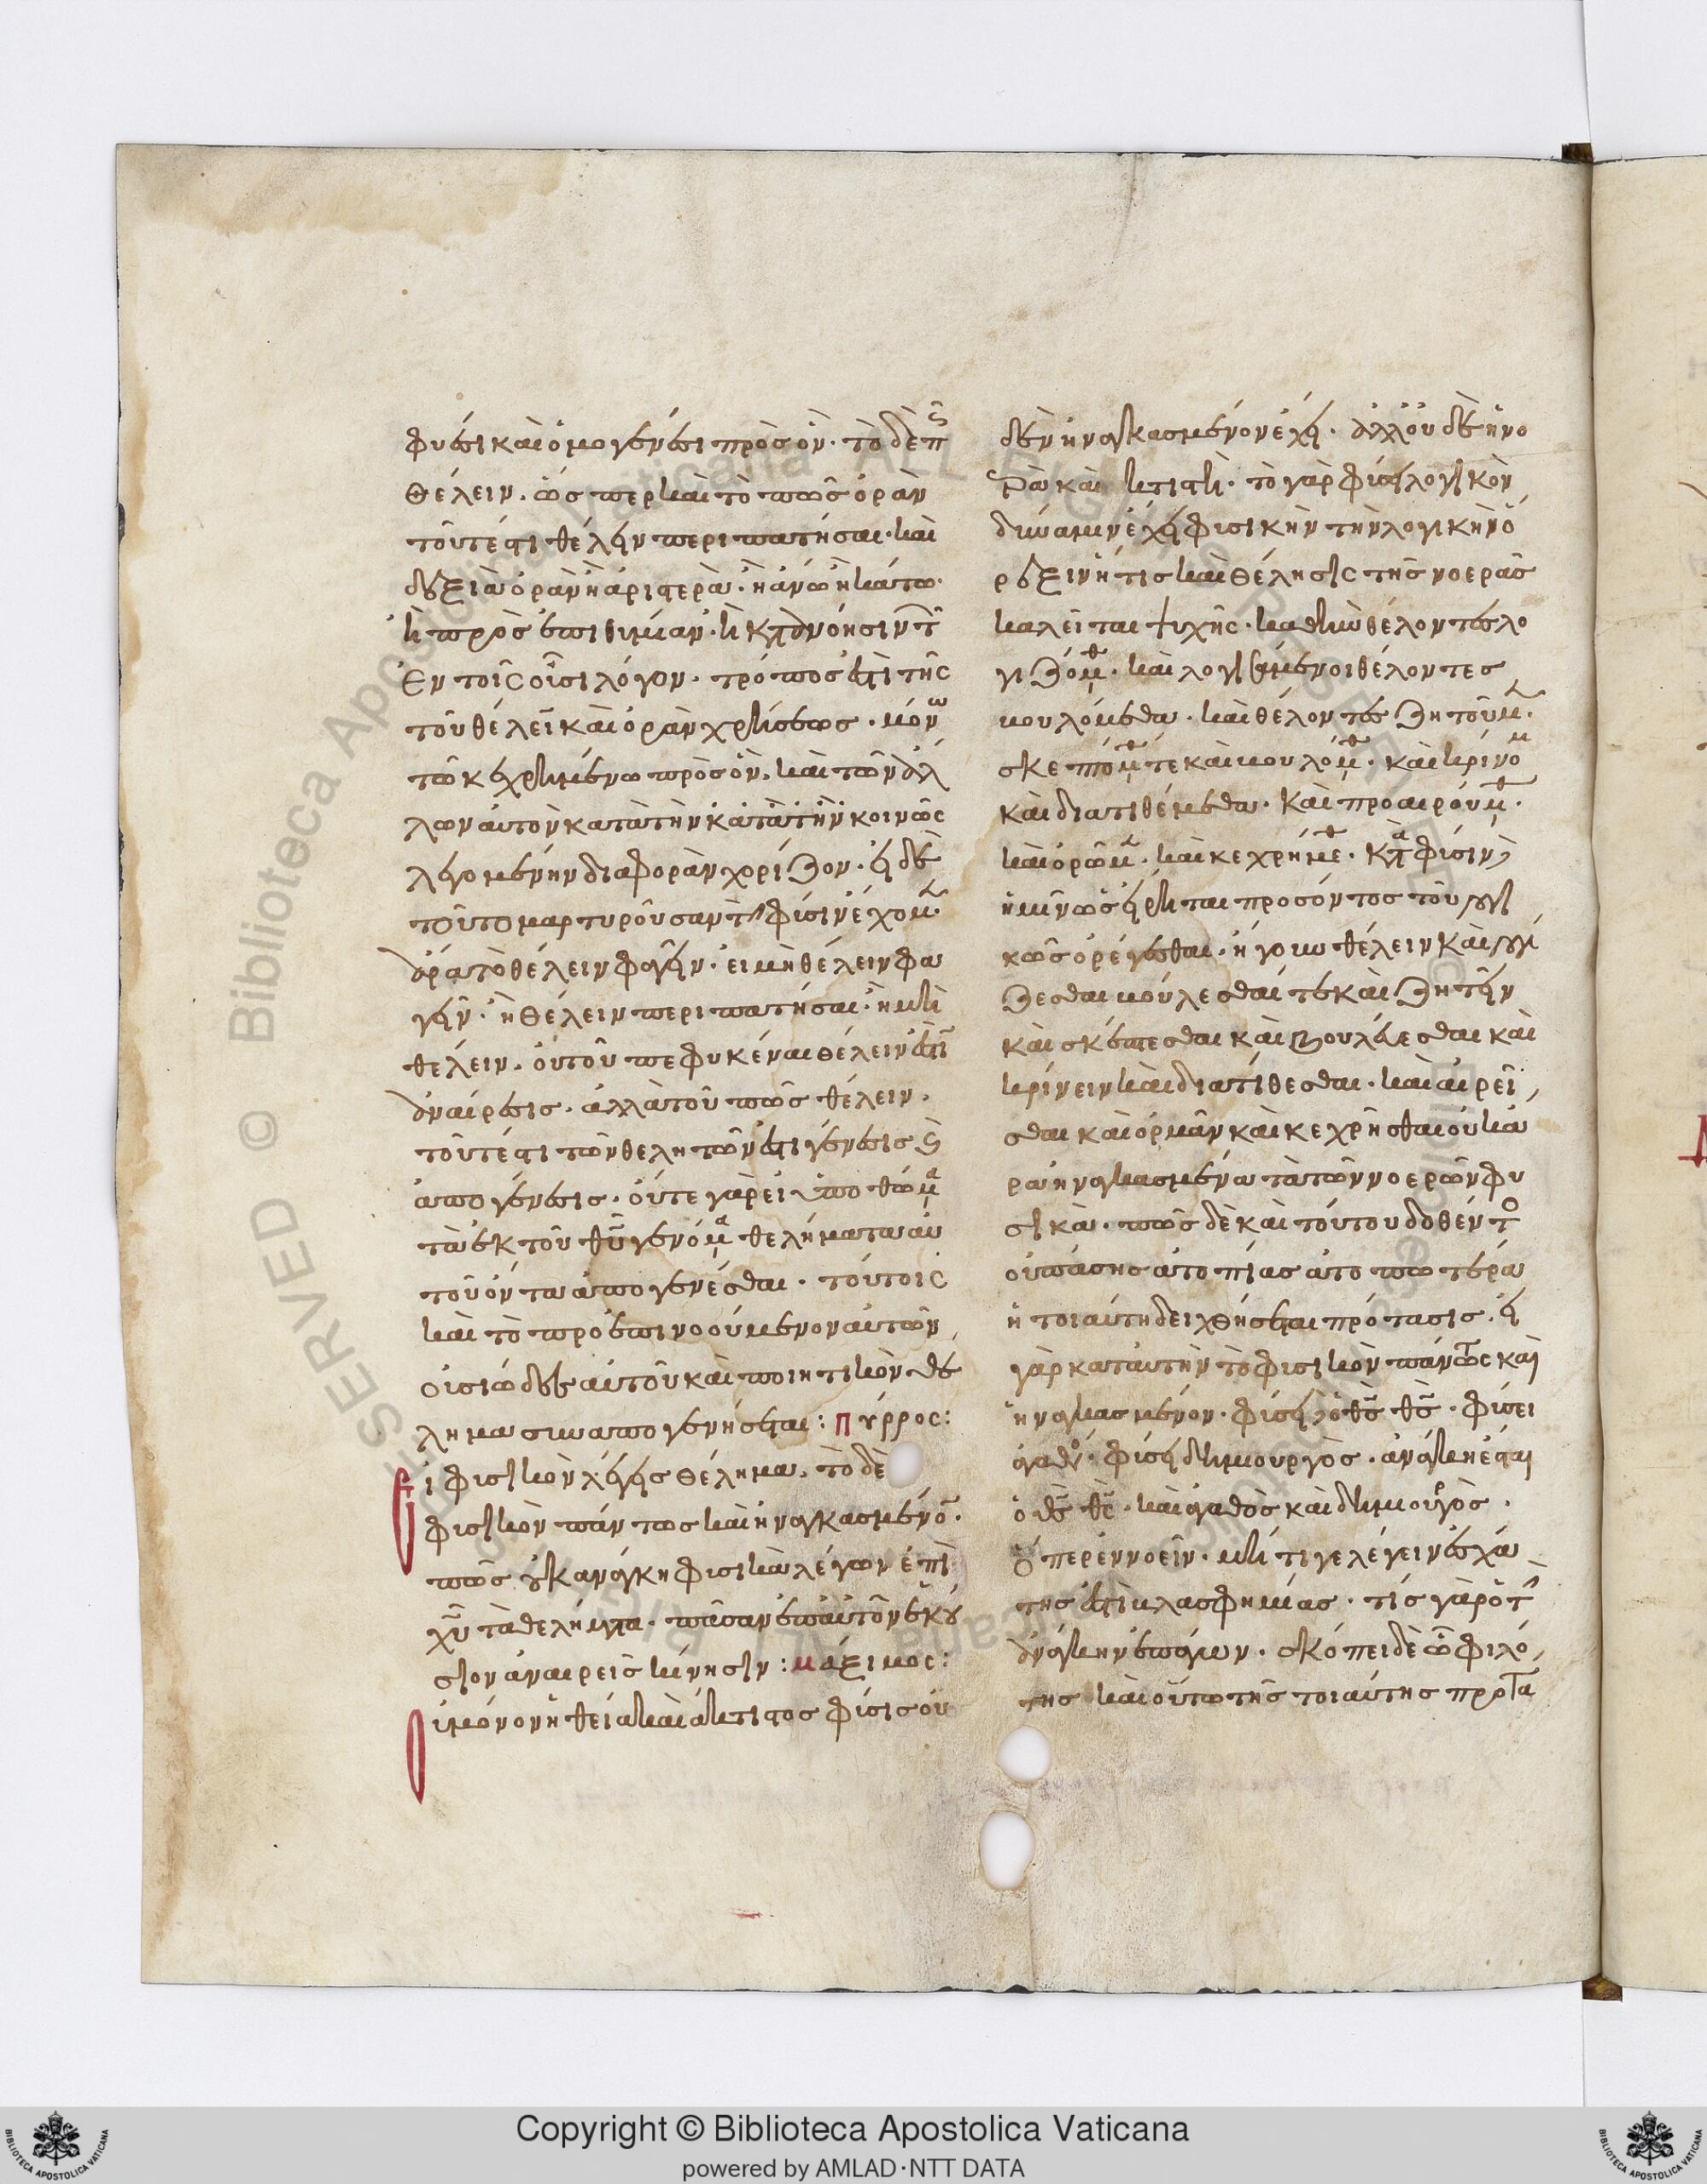 φύσει καὶ ὁμογενέσι προσὸν· τὸ δὲ πῶς
θέλειν. ὥσπερ καὶ τὸ πῶς ὁρᾶν
τουτέστι θέλειν περιπατῆσαι· καὶ
δεξιὰ ὁρᾶν ἢ ἀριστερὰ· ἢ ἄνω ἢ κάτω·
ἢ πρὸς ἐπιθυμίαν· ἢ κατανόησιν τῶν
ἐν τοῖς οὖσι λόγων· τρόπος ἐστὶ τῆς
τοῦ θέλειν καὶ ὁρᾶν χρήσεως· μόνω
τῶ κεχρημένω προσὸν. καὶ τῶν ἄλ
λων αὐτὸν κατὰ τὴν κατὰ τὴν κοινῶς
λεγομένην διαφορὰν χορίζον· εἰ δὲ
τοῦτο μαρτυροῦσαν τὴν φύσιν ἔχομεν·
ἆρα τὸ θέλειν φαγεῖν· εἰ μὴ θέλειν φα
γεῖν· ἢ θέλειν περιπατῆσαι· ἢ μὴ
θέλειν. οὐ τοῦ πεφυκέναι θέλειν ἐστὶν
ἀναίρεσις. ἀλλὰ τοῦ πῶς θέλειν.
τουτέστι τῶν θελητῶν ἐστι γένεσις καὶ
ἀπογένεσις· οὔτε γὰρ εἰ ὑποθώμεθα
τὰ ἐκ τοῦ θυ γενόμενα θελήματα αὐ
τοῦ ὄντα ἀπογενέσθαι· τούτοις
καὶ τὸ προεπινοούμενον αὐτῶν
οὐσιῶδες αὐτοῦ καὶ ποιητικὸν θέ
λημα συναπογενήσεται: Πύρρος:
Εἰ φυσικὸν λέγεις θέλημα. τὸ δὲ
φυσικὸν πάντως καὶ ἠναγκασμένον·
πῶς οὐκ ανάγκη φυσικὰ λέγων ἐπὶ
χυ τὰ θελήματα· πᾶσαν ἐπ' αὐτὸν ἑκού
σιον ἀναιρεῖς κίνησιν: Μάξιμος:
Οὐ μόνον ἡ θεία καὶ ἄκτιστος φύσις οὐ
δὲν ἠναγκασμένον ἔχει· ἀλλ' οὐδὲ ἡ νο
ερὰ καὶ κτιστὴ· τὸ γὰρ φύσει λογικὸν
δύναμιν ἔχει φυσικὴν τὴν λογικὴν ὄ
ρεξιν ἥτις καὶ θέλησις τῆς νοερᾶς
καλεῖται ψυχῆς· καθ' ἣν θέλοντες λο
γιζόμεθα· καὶ λογιζόμενοι θέλοντες
βουλόμεθα· καὶ θέλοντες ζητοῦμεν·
σκεπτόμεθά τε καὶ βουλόμεθα· καὶ κρίνομεν
καὶ διατιθέμεθα· καὶ προαιρούμεθα·
καὶ ὁρῶμεν· καὶ κεχρήμεθα· κατὰ φύσιν δὲ
ἡμῖν ὡς εἴρηται προσόντος τοῦ λογι
κῶς ὀρέγεσθαι· ἤγουν θέλειν καὶ λογί
ζεσθαι βούλεσθαί τε καὶ ζητεῖν
καὶ σκέπτεσθαι καὶ βουλεύεσθαι καὶ
κρίνειν καὶ διατίθεσθαι· καὶ αἱρεῖ
σθαι καὶ ὁρμᾶν καὶ κεχρῆσθαι οὐκ ἄ
ρα ἠναγκασμένα τὰ τῶν νοερῶν φυ
σικὰ· πῶς δὲ καὶ τούτου δοθέντος
οὐ πάσης ἀτοπίας ἀτοπωτέρα
ἡ τοιαύτη δειχθήσεται πρότασις. εἰ
γὰρ κατ' αὐτὴν τὸ φυσικὸν πάντως καὶ
ἠναγκασμένον· φύσει δὲ ὁ θς θς· φύσει
ἀγαθός· φύσει δημιουργὸς· ἀνάγκη ἔσται
ὁ θς θς· καὶ ἀγαθὸς καὶ δημιουργὸς·
ὅπερ ἐννοεῖν· μή τί γε λέγειν ἐσχά
της ἐστὶ βλασφημίας· τίς γὰρ ὁ τὴν
ἀνάγκην ἐπάγων· σκόπει δὲ ὦ φιλό
της καὶ οὕτω τῆς τοιαύτης προτά
Copyright © Biblioteca Apostolica Vaticana
powered by AMLAD·NTT DATA